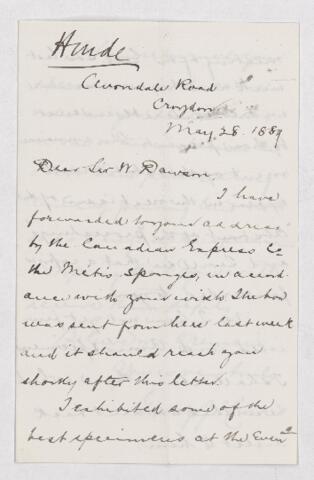 Hinde
Avondale Road
Croydon
May 28. 1889
Dear Sir W. Dawson,
I have
forwarded to your address
by the Canadian Express Co
the Metis sponges, in accord-
ance with your wish. The box
was sent from here last week
and it should reach you
shortly after this letter.
I exhibited some of the
best specimens at the Eveng